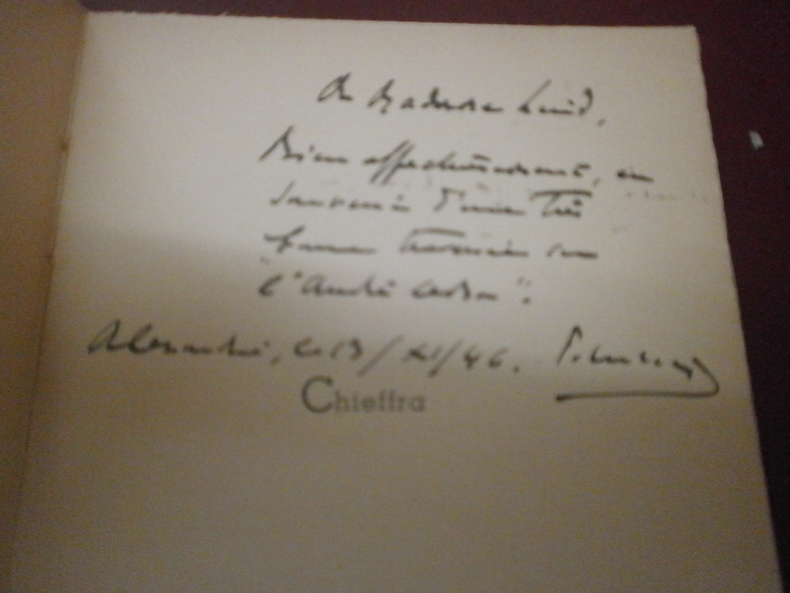 A Madame
Bien affectueusement, en
souvenir d'une très
bonne traversée sur
l'"André Lebon".
Alexandrie, le 13/XI/46.
Chieffra